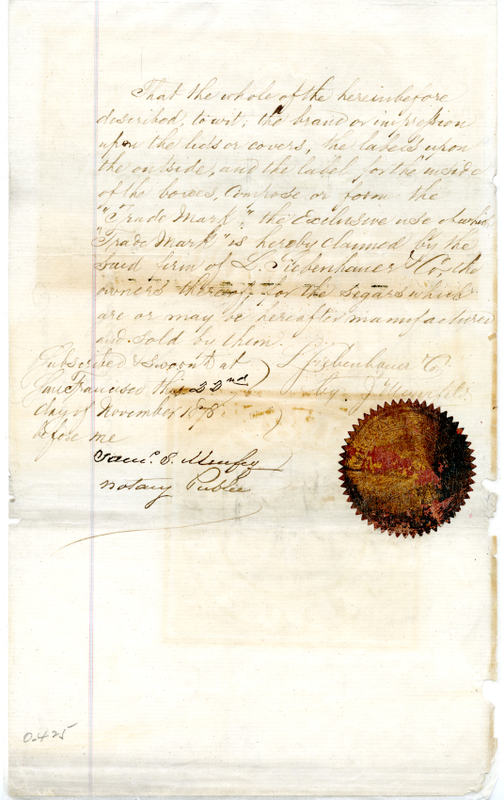 That the whole of the hereinbefore
described, to wit; the brand or impression
upon the lids or covers, the labels upon
the outside, and the label for the inside
of the boxes, compose or form the
"Trade Mark", the Exclusive use of which
"Trade Mark" is hereby claimed by the
said firm of L. Fiebenhauer & Co, the
owners thereof, for the segars which
are or may be hereafter manufactured
and sold by them.
Subscribed & sworn to at
San Francisco this 22nd
day of November 1878
before me
L. Fiebenhauer & Co
by J.
Saml. S. Murfey
Notary Public
0.425